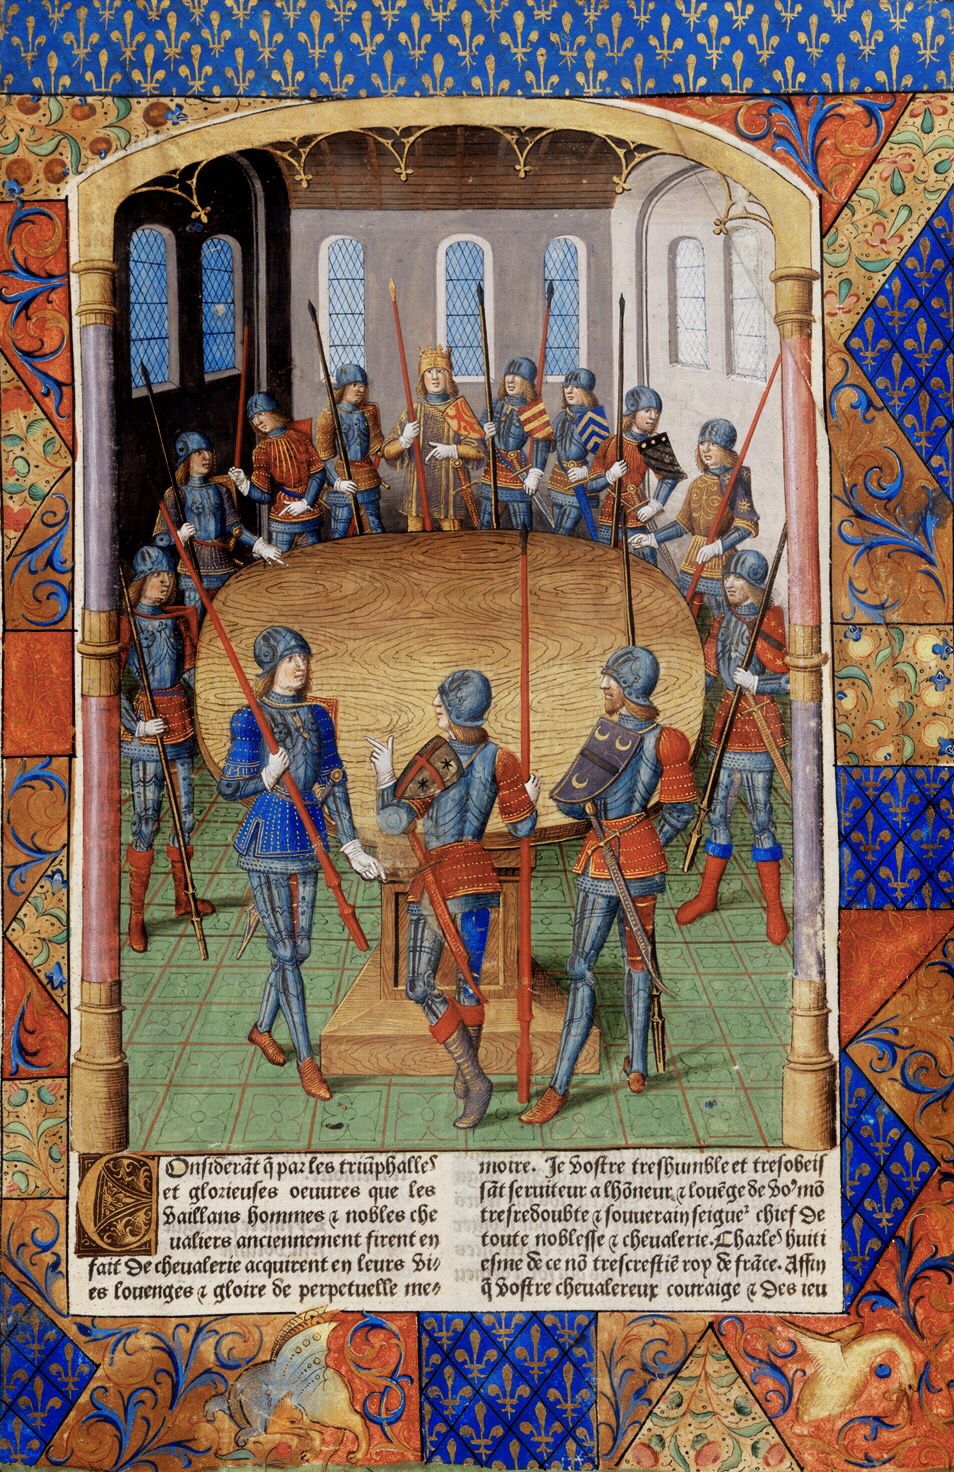 Onsiderãt q̃ par les triũphalles
et glorieuses oeuures que les
vaillans hommes ⁊ nobles che
ualiers anciennement firent en
fait de cheualerie acquirent en leurs vi⸗
es louenges ⁊ gloire de perpetuelle me⸗
moire. Je vostre treshumble et tresobeis
sãt seruiteur a lhõneur ⁊ louẽge de voꝰ mõ
tresredoubte ⁊ souuerain seigneᷣ chief de
toute noblesse ⁊ cheualerie. Charles huiti
esme de ce nõ trescrestiẽ roy de frãce. Affin
q̃ vostre cheualereux couraige ⁊ des ieu